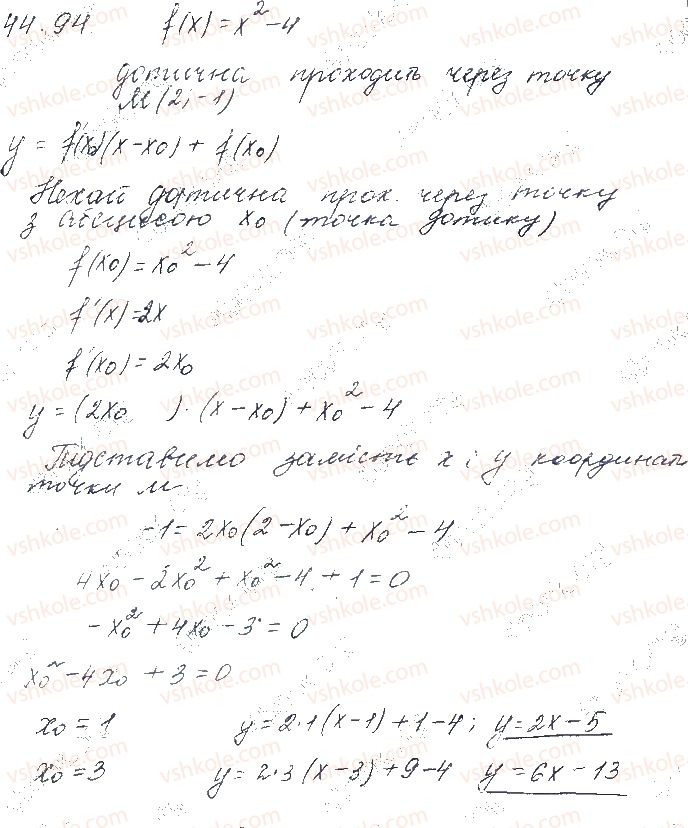 44.94 f(x)=x²-4
дотична проходить через точку
M(2;-1)
y = f'(x₀)(x-x₀) + f(x₀)
Нехай дотична прох. через точку
з абсцисою x₀ (точка дотику)
f(x₀)=x₀²-4
f'(x)=2x
f'(x₀)=2x₀
y=(2x₀ )·(x-x₀)+x₀²-4
Підставимо замість x і y координати
точки M
-1=2x₀(2-x₀)+x₀²-4
4x₀-2x₀²+x₀²-4+1=0
-x₀²+4x₀-3=0
x₀²-4x₀+3=0
x₀=1 y=2·1(x-1)+1-4; y=2x-5
x₀=3 y=2·3(x-3)+9-4 y=6x-13